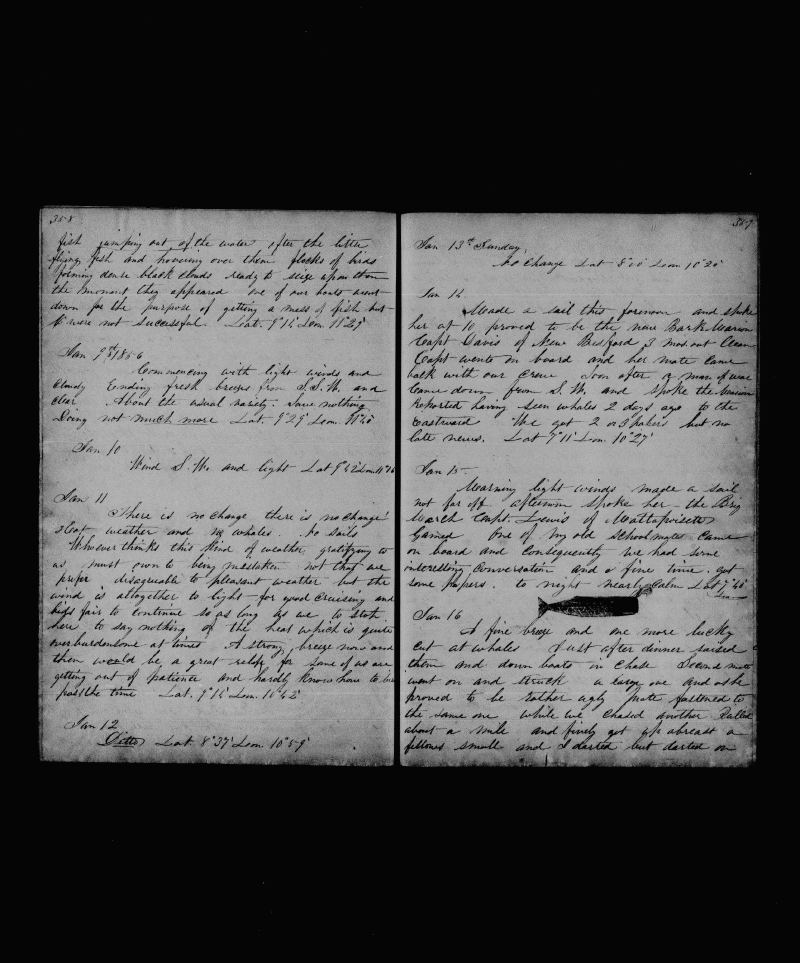 358
fish jumping out of the water after the little
flying fish and hovering over them flocks of birds
forming dense black clouds ready to seize upon them
the moment they appeared one of our boats went
down for the purpose of getting a mess of fish but
were not successful. Lat. 9°14' Lon. 11°29'
Jan 9th 1856
Commencing with light winds and
cloudy Ending fresh breezes from S.S.W. and
clear. About the usual variety. Saw nothing
Doing not much more Lat. 9°29' Lon.
Jan 10
Wind S. W. and light Lat 9°42' Lon. 11°
Jan 11
There is no change there is no change
Hot weather and no whales. No sails
Whoever thinks this kind of weather gratifying to
us must own to being mistaken not that we
prefer disagreable to pleasant weather but the
wind is altogether to light for good cruising and
bids fair to continue so as long as we to stop
here to say nothing of the heat which is quite
overburdensome at times A strong breeze now and
then would be a great relief for some of us are
getting out of patience and hardly know how to
pass the time Lat. 9°14' Lon. 11°42'
Jan 12
Ditto Lat. 8°37' Lon. 10°59'
359
Jan 13th Sunday,
No Change Lat 8°00' Lon. 10°20'
Jan 14
Made a sail this forenoon and spoke
her at 10 proved to be the new Bark Marion
Capt Davis of New Bedford 3 mos out Clean
Capt went on board and her mate came
back with our crew Soon after a man of war
came down from S. W. and spoke the Marion
Reported having seen whales 2 days ago to the
Eastward We got 2 or 3 papers but no
late news. Lat 7°11' Lon. 10°27'
Jan 15
Morning light winds made a sail
not far off afternoon spoke her the Brig
March Capt. Lewis of Mattapoisett
Gamed One of my old schoolmates came
on board and Consequently we had some
interesting conversation and a fine time. got
some papers. to night nearly Calm Lat 7°40'
Lon.
Jan 16
A fine breeze and one more lucky
cut at whales Just after dinner raised
them and down boats in chase Second mate
went on and struck a large one and
proved to be rather ugly Mate fastened to
the same one while we Chased another Pulled
about a mile and finely got up abreast a
fellows small and I darted but darted on